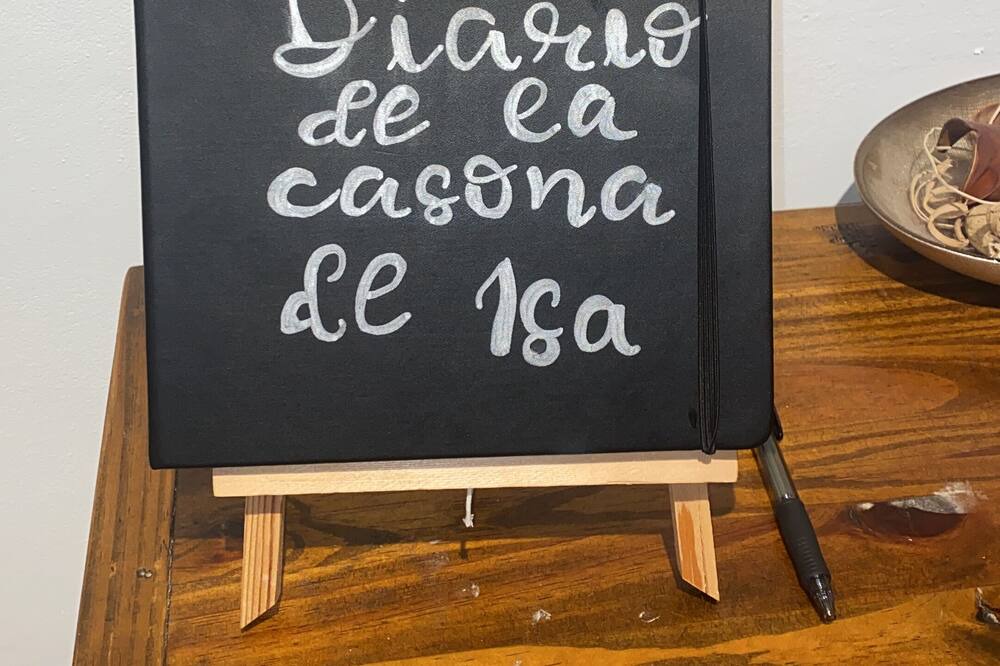 Diario
de la
casona
de Isa